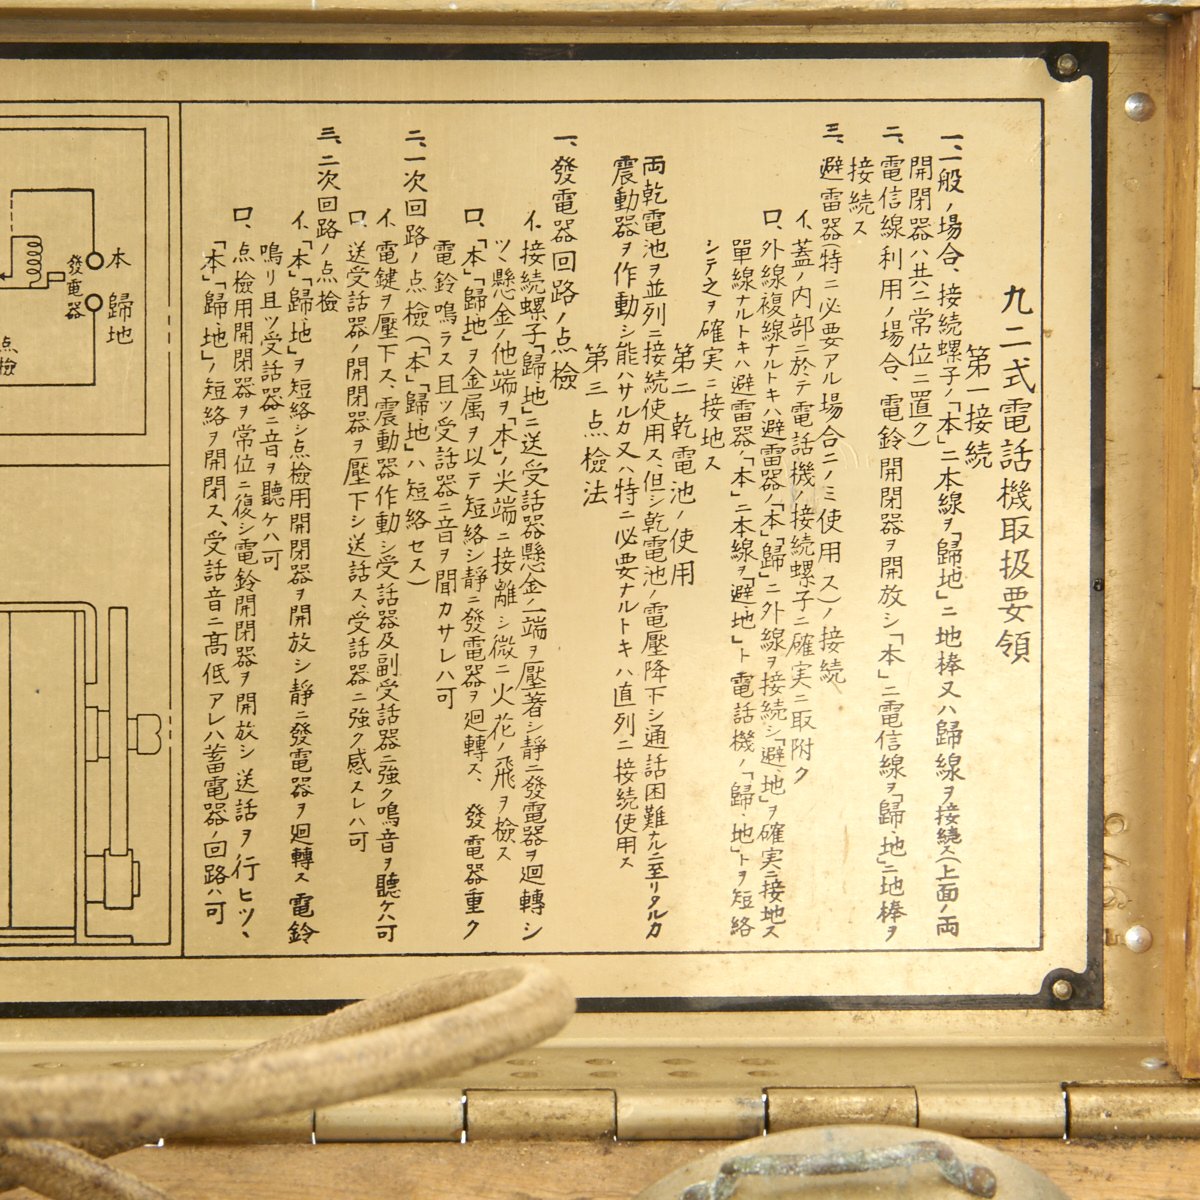 九二式電話機取扱要領
第一 接続
一、一般ノ場合、接続螺子ノ「本」ニ本線ヲ「歸地」ニ地棒又ハ歸線ヲ接続ス(上面ノ両
開閉器ハ共ニ常位ニ置ク)
二、電信線利用ノ場合、電鈴開閉器ヲ開放シ「本」ニ電信線ヲ「歸・地」ニ地棒ヲ
接続ス
三、避雷器(特ニ必要アル場合ニノミ使用ス)ノ接続
イ、蓋ノ内部ニ於テ電話機ノ接続螺子ニ確実ニ取附ク
ロ、外線複線ナルトキハ避雷器ノ「本」「歸」ニ外線ヲ接続シ「避・地」ヲ確実ニ接地ス
單線ナルトキハ避雷器ノ「本」ニ本線ヲ「避・地」ト電話機ノ「歸・地」トヲ短絡
シテ之ヲ確実ニ接地ス
第二 乾電池ノ使用
両乾電池ヲ並列ニ接続使用ス、但シ乾電池ノ電壓降下シ通話困難ナルニ至リタルカ
震動器ヲ作動シ能ハサルカ又ハ特ニ必要ナルトキハ直列ニ接続使用ス
第三 点檢法
一、發電器回路ノ点檢
イ、接続螺子「歸・地」ニ送受話器懸金ノ一端ヲ壓著シ靜ニ發電器ヲ廻轉シ
ツヽ懸金ノ他端ヲ「本」ノ尖端ニ接離シ微ニ火花ノ飛ヲ檢ス
ロ、「本」「歸・地」ヲ金属ヲ以テ短絡シ靜ニ發電器ヲ廻轉ス、發電器重ク
電鈴鳴ラス且ツ受話器ニ音ヲ聞カサレハ可
二、一次回路ノ点檢(「本」「歸・地」ハ短絡セス)
イ、電鍵ヲ壓下ス、震動器作動シ受話器及副受話器ニ強ク鳴音ヲ聽ケハ可
ロ、送受話器ノ開閉器ヲ壓下シ送話ス、受話器ニ強ク感スレハ可
三、二次回路ノ点檢
イ、「本」「歸・地」ヲ短絡シ点檢用開閉器ヲ開放シ靜ニ發電器ヲ廻轉ス電鈴
鳴リ且ツ受話器ニ音ヲ聽ケハ可
ロ、点檢用開閉器ヲ常位ニ復シ電鈴開閉器ヲ開放シ送話ヲ行ヒツヽ
「本」「歸・地」ノ短絡ヲ開閉ス、受話音ニ高低アレハ蓄電器ノ回路ハ可
本
歸地
發電器
点檢